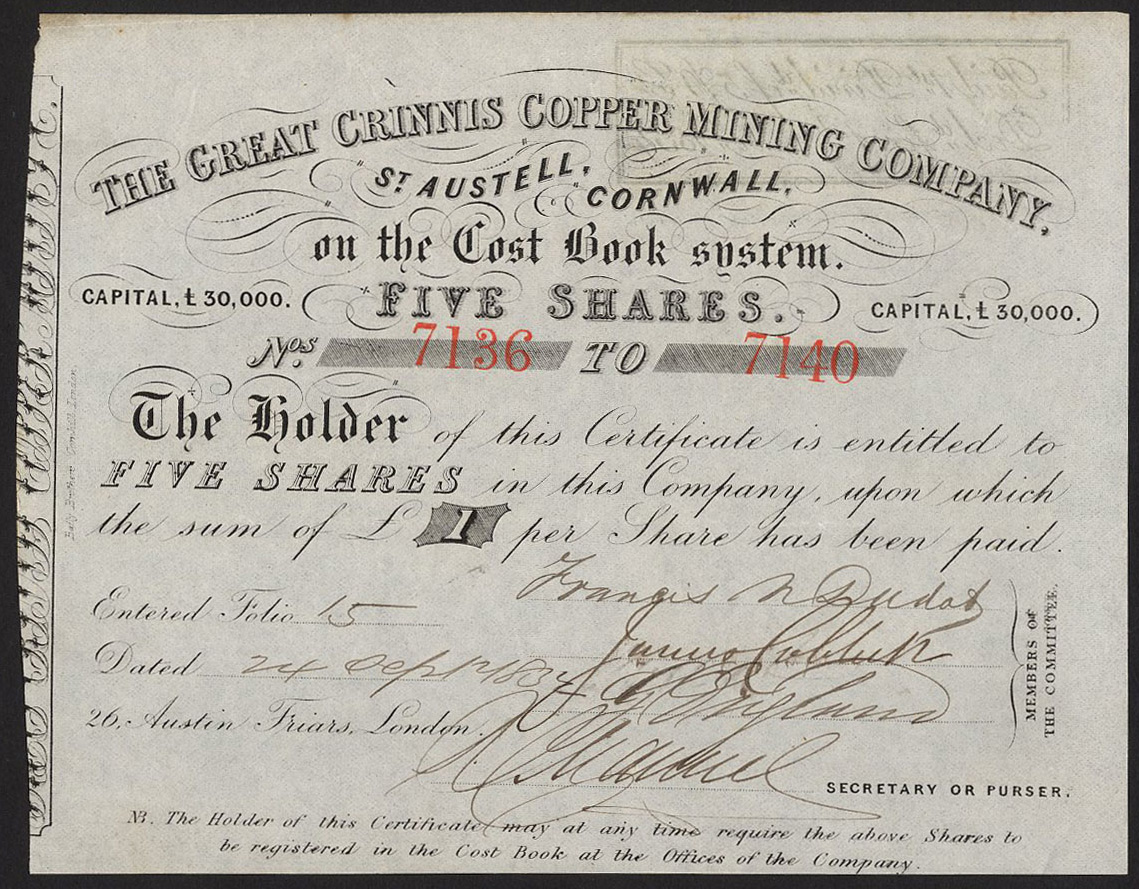 THE GREAT CRINNIS COPPER MINING COMPANY,
ST AUSTELL, CORNWALL,
on the Cost Book system.
CAPITAL, £30,000. FIVE SHARES. CAPITAL, £30,000.
Nos 7136 TO 7140
The Holder of this Certificate is entitled to
FIVE SHARES in this Company, upon which
the sum of £1 per Share has been paid.
Francis
Entered Folio 15
James
Dated 24 Sept
26, Austin Friars, London.
MEMBERS OF
THE COMMITTEE.
SECRETARY OR PURSER.
NB. The Holder of this Certificate may at any time require the above Shares to
be registered in the Cost Book at the Offices of the Company.